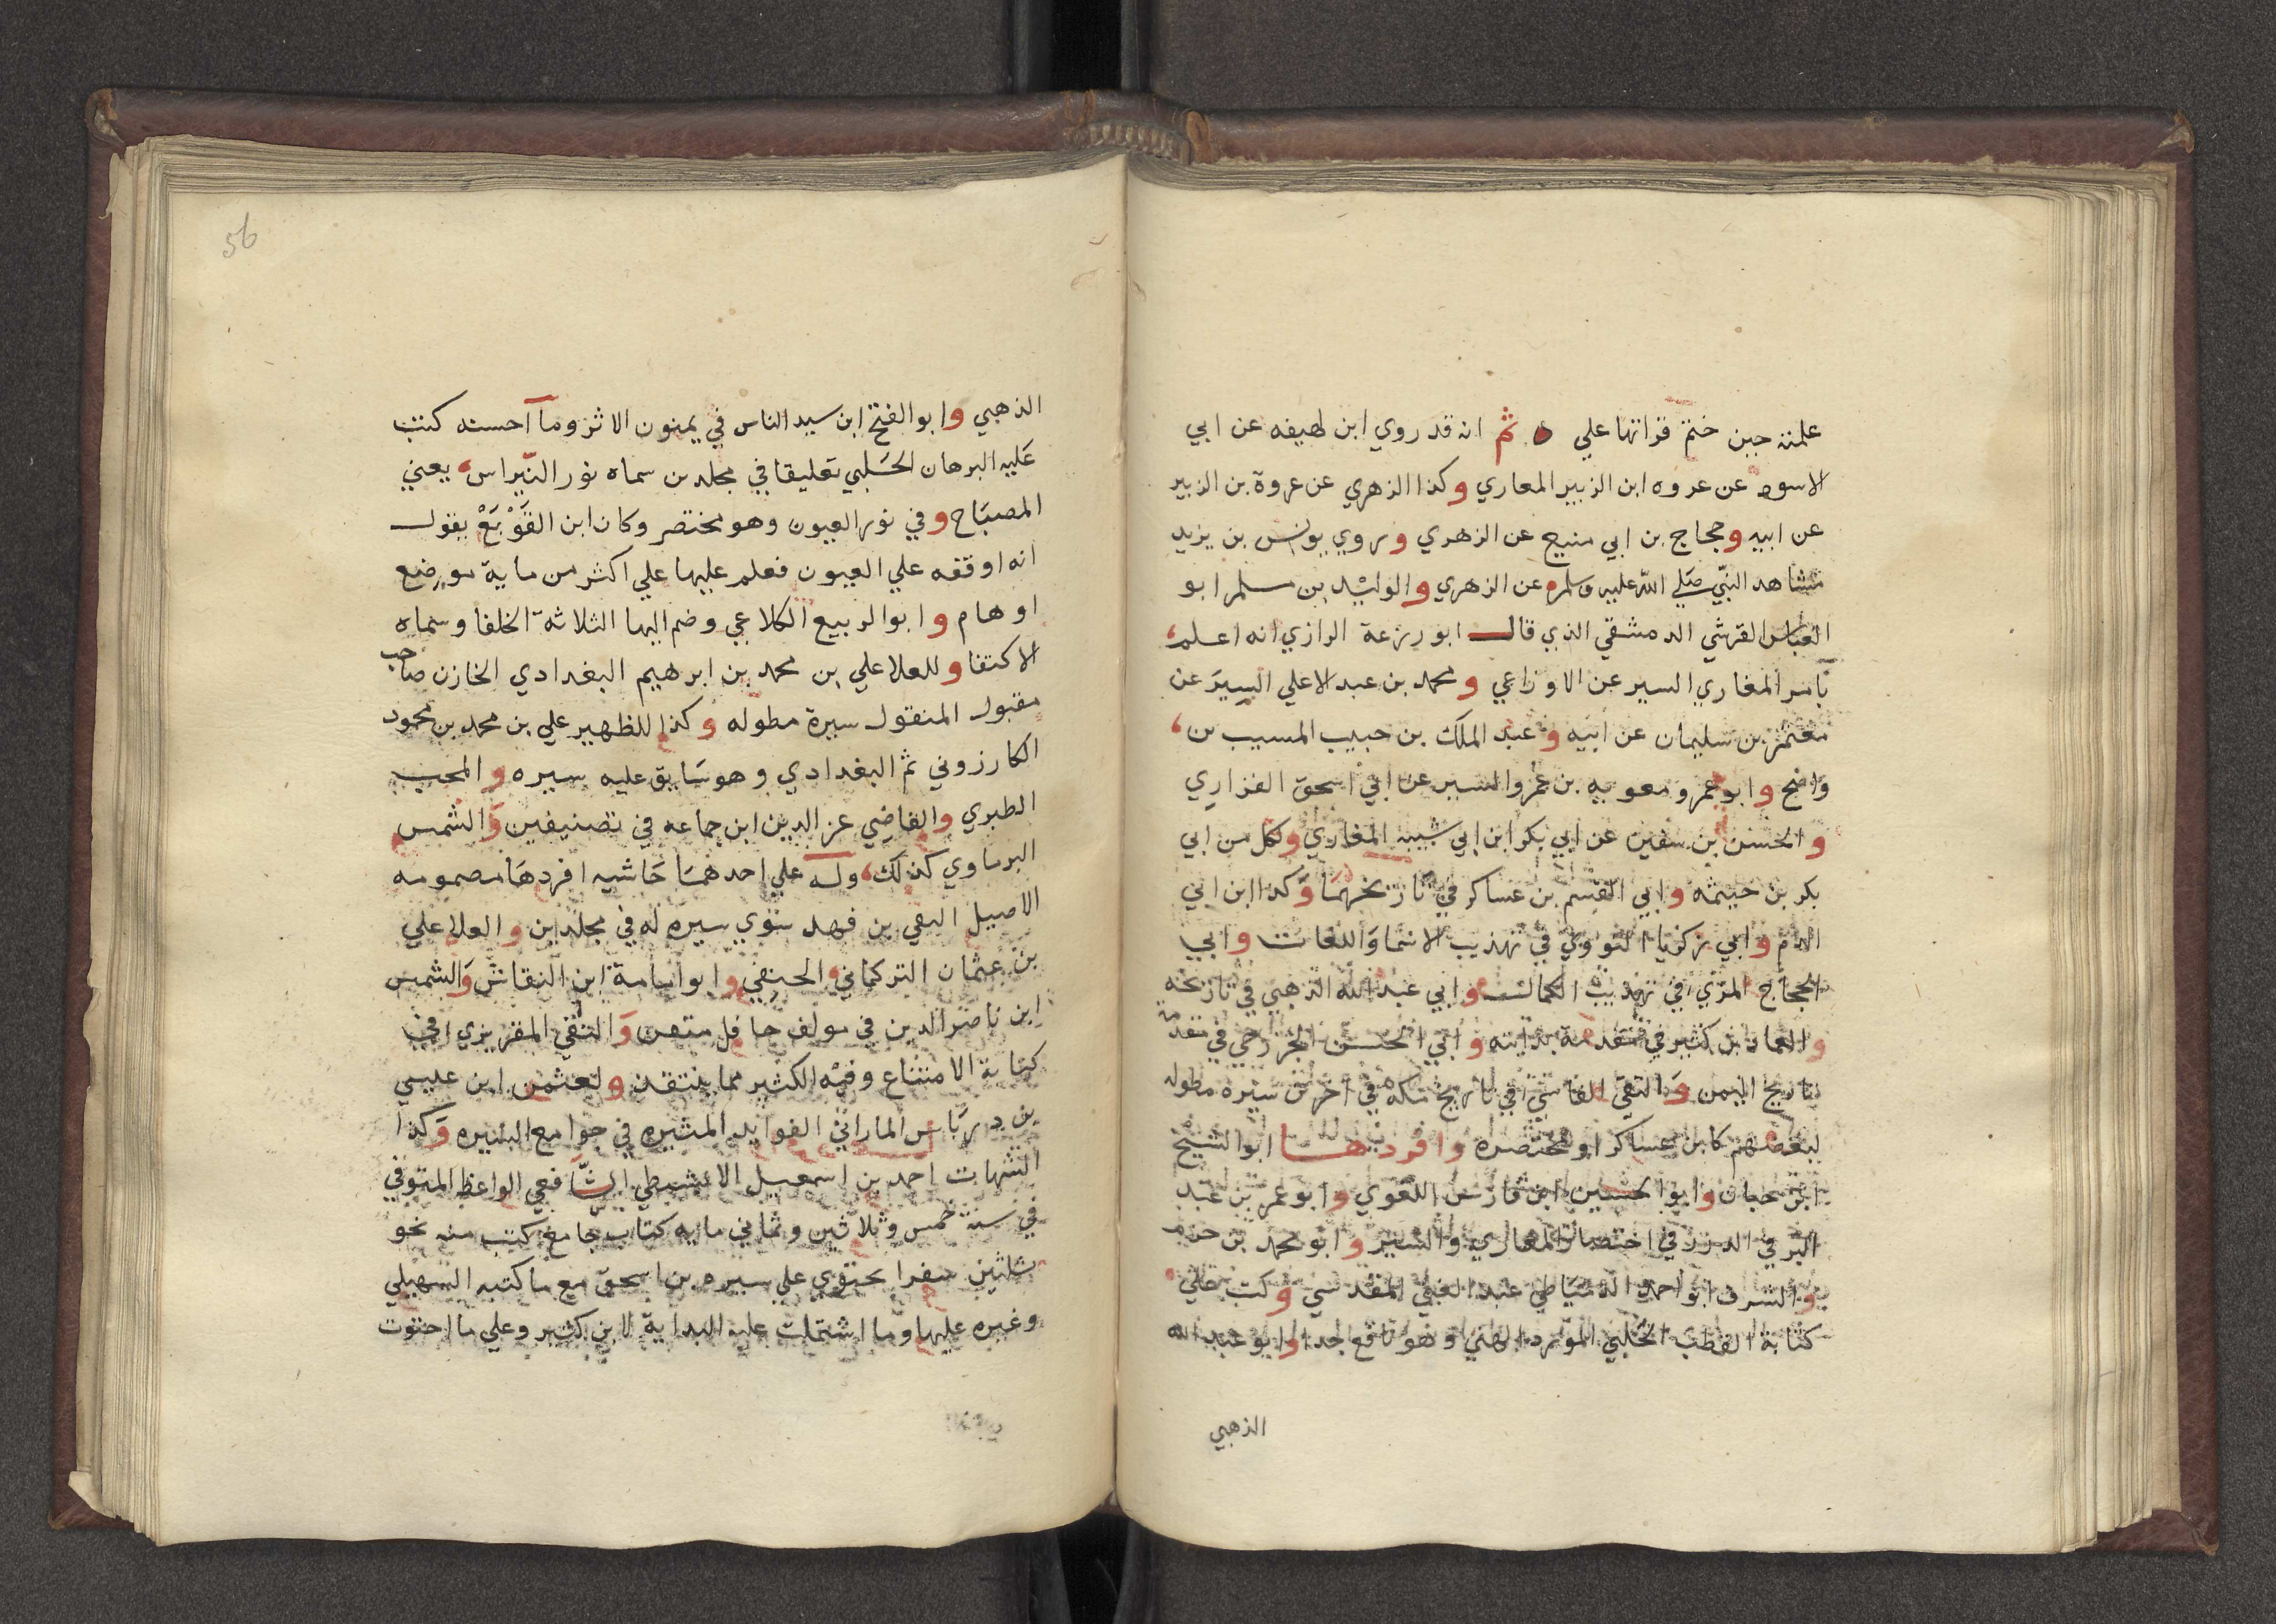 علمته حين ختم قراتها علي ثم انه قد روي ابن لهيعه عن ابي
الاسود عن عروه ابن الزبير المعازي وكذا الزهري عن عروة بن الزبير
عن ابيه وحجاج بن ابي منيع عن الزهري وروي يونس بن يزيد
مشاهد النبي صلي الله عليه وسلم عن الزهري والوليد بن مسلم ابو
العباس القرشي الدمشقي الذي قال ابو زرعة الرازي انه اعلم
بامر المغازي السير عن الاوزاعي ومحمد بن عبد الاعلي السير عن
معتمر بن سليمان عن ابيه وعبد الملك بن حبيب المسيب بن
واضح وابو عمرو معويه بن عمرو السير عن ابي اسحق الفزاري
والحسن بن سفين عن ابي بكر ابن ابي شيبه المغازي ولكل من ابي
بكر بن خيثمه وابي القسم بن عساكر في تاريخهما وكذا ابن ابي
الدم وابي زكريا النووي في تهذيب الاسما واللغات وابي
الحجاج المزي في تهذيب الكمال وابي عبد الله الذهبي في تاريخه
والعماد بن كثير في مقدمة بدايته وابي الحسن الخزرجي في مقدمة
تاريخ اليمن والتقي الفاسي في تاريخ مكه في اخرين سيره مطوله
لبعضهم كابن عساكر او مختصره وافردها ابو الشيخ
ابن حبان وابو الحسين ابن فارس اللغوي وابو عمر بن عبد
البر في الدرر في اختصار المغازي والسير وابو محمد بن حزم
والشرف ابو احمد الدمياطي عبد الغني المقدسي وكتب علي
كتابة القطب الحلبي المورد الهني وهو نافع جدا وابو عبد الله
الذهبي
56
الذهبي وابو الفتح ابن سيد الناس في يمنون الاثر وما احسنه كتب
عليه البرهان الحلبي تعليقا في مجلدين سماه نور النبراس يعني
المصباح وفي نور العيون وهو مختصر وكان ابن القوبع يقول
انه اوقفه علي العيون فعلم عليها علي اكثر من ماية موضع
اوهام وابو الربيع الكلاعي وضم اليها الثلاثة الخلفا وسماه
الاكتفا وللعلا علي بن محمد بن ابرهيم البغدادي الخازن صاحب
مقبول المنقول سيرة مطوله وكذا للظهير علي بن محمد بن محمود
الكازروني ثم البغدادي وهو سابق عليه سيره والمحب
الطبري والقاضي عز الدين ابن جماعه في تصنيفين والشمس
البرماوي كذلك وله علي احدهما حاشيه افردها مضمومه
الاصيل التقي بن فهد سوي سيره له في مجلدين والعلا علي
بن عثمان التركماني الحنفي وابو امامة ابن النقاش والشمس
ابن ناصر الدين في مولف حافل متعن والتقي المقريزي في
كتابة الامتناع وفيه الكثير مما ينتقد ولعثمن ابن عيسي
بن درباس الماراني الفوايد المثيره في جوامع السيره وكذا
الشهاب احد بن اسمعيل الابشيطي الشافعي الواعظ المتوفي
في سنة خمس وثلاثين وثماني مايه كتاب جامع كتب منه نحو
ثلثين سفرا يحتوي علي سيره بن اسحق مع ما كتبه السهيلي
وغيره عليها وما اشتملت عليه البداية لابن كثير وعلي ما احتوت